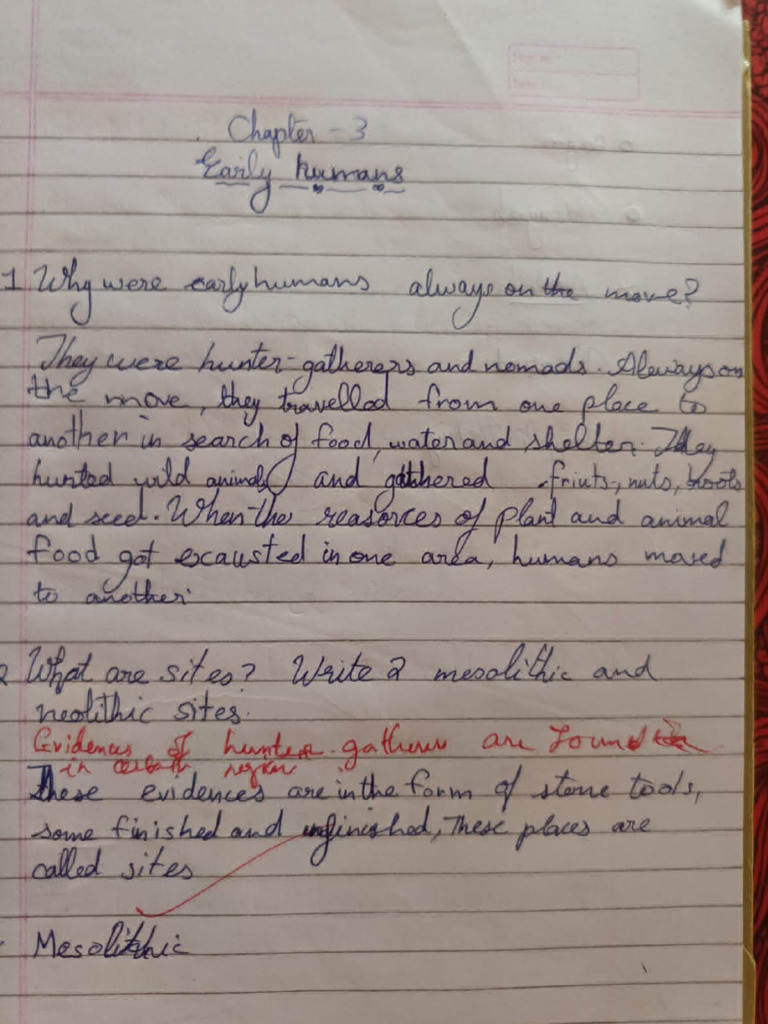 Chapter - 3
Early humans
1 Why were early humans always on the move?
They were hunter-gatherers and nomads. Always on
the move, they travelled from one place to
another in search of food, water and shelter. They
hunted wild animals and gathered friuts, nuts, roots
and seed. When the reasorces of plant and animal
food got excausted in one area, humans moved
to another.
2 What are sites? Write 2 mesolithic and
neolithic sites.
Evidences of hunter gatherer are found
in certain region
These evidences are in the form of stone tools,
some finished and unfinished, These places are
called sites
Mesolithic